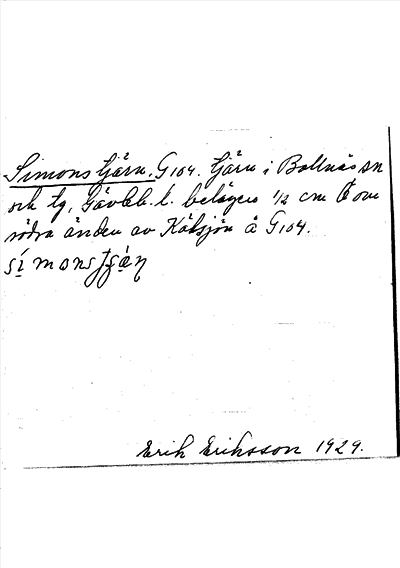 Simonstjärn. G104. Tjärn i Bollnäs sn
och tg, Gävleb. l. belägen 1/2 cm Ö om
södra änden av Kålsjön å G104.
Erik Eriksson 1929.